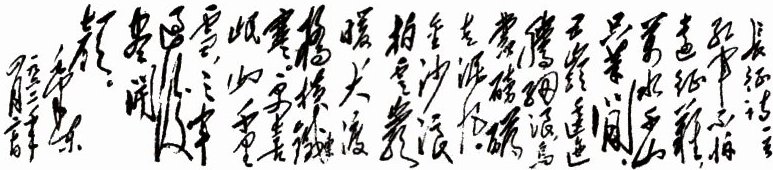 長征詩一首
紅軍不怕
遠征難，
萬水千山
只等閒。
五嶺逶迤
騰細浪，烏
蒙磅礴
走泥丸。
金沙浪
拍雲崖
暖，大渡
橋橫鐵索
寒。更喜
岷山千里
雪，三軍
過後
盡開
顏。
毛澤東
一九六二年
四月廿日